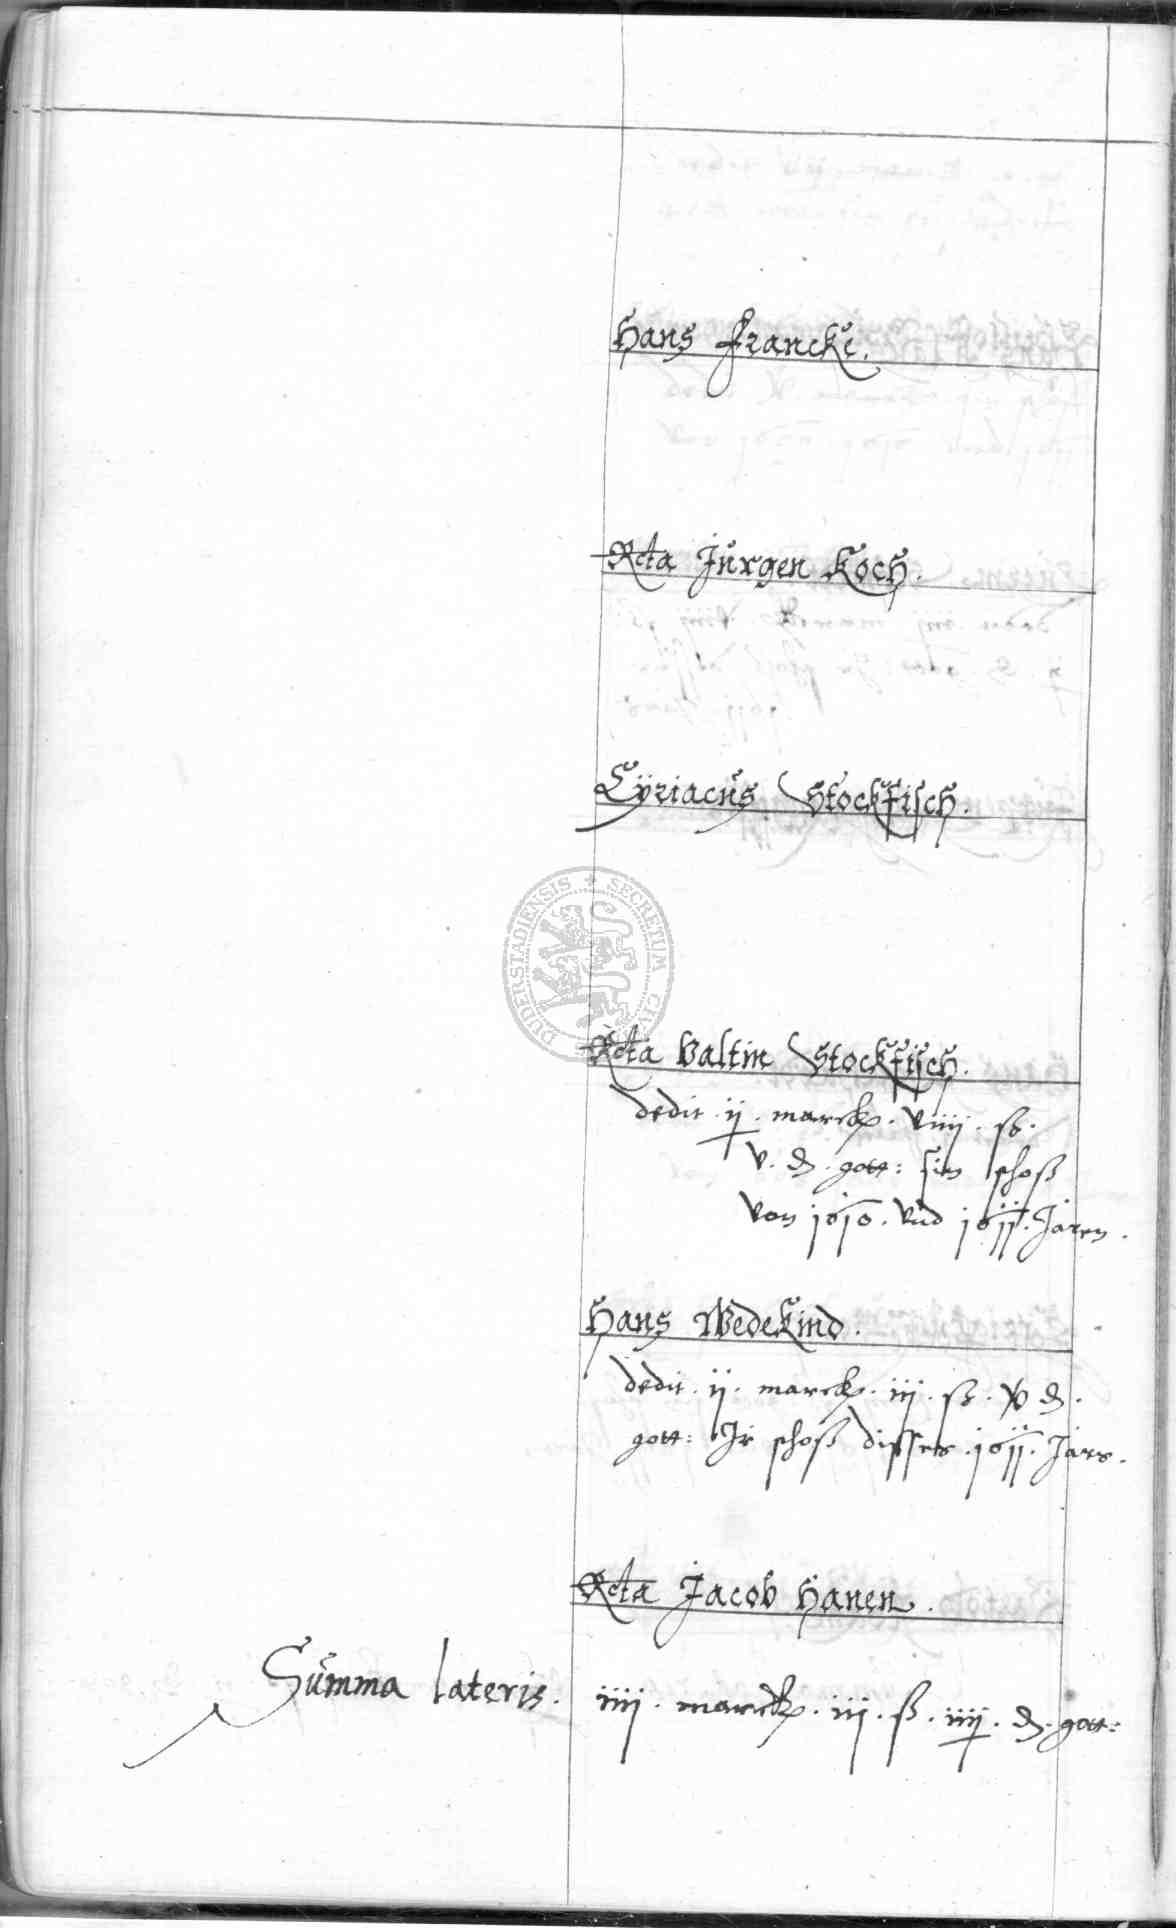 Hans Francke.
Rcta Jürgen Koch.
Cÿriacus Stockfisch.
DUDERSTADIENSIS + SECRETUM CIVI
Rcta Valtin Stockfisch.
dedit . ij . marck . viiij . ß .
v . ₰ . gott : sin schoß
von 1610 . vnd 1611 . Jaren .
Hans Wedekind .
dedit . ij . marck . iij . ß . ₰ .
gott : Jr schoß disses . 1611 . Jars .
Rcta Jacob Hanen .
Summa lateris . iiij . marck . iij . ß . iiij . ₰ . gott :